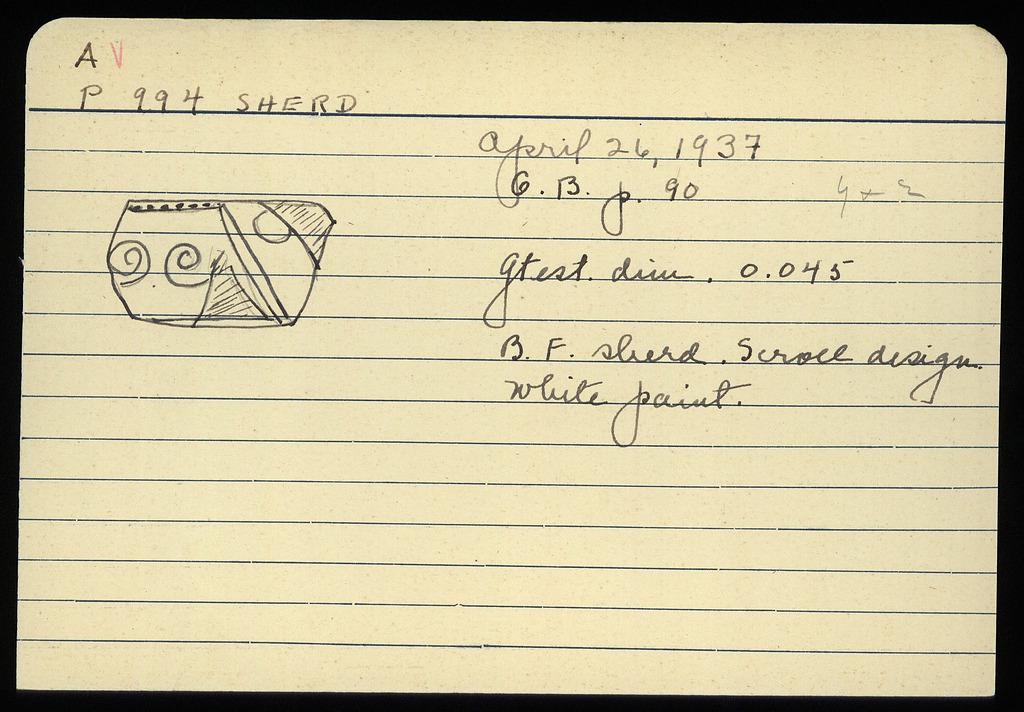 A V
P 994 SHERD
April 26, 1937
G. B. p. 90
gtest. dim. 0.045
B. F. sherd. Scroll design.
White paint.